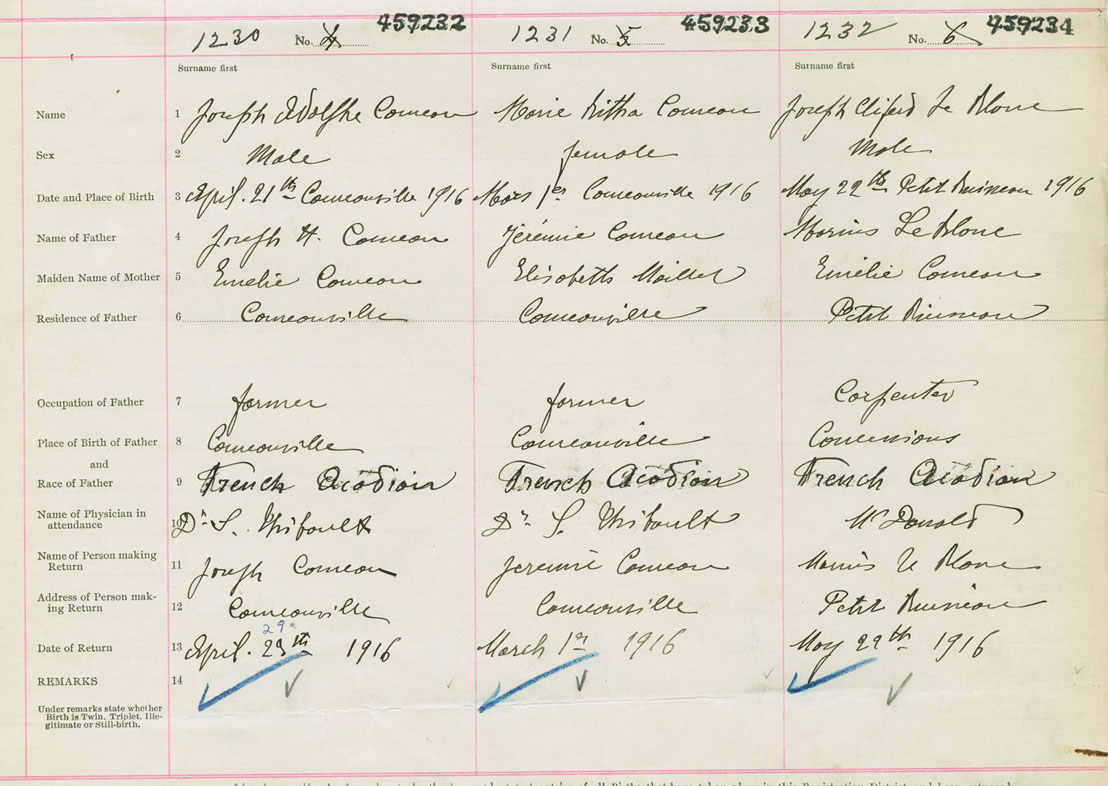 1230 No. 4 459232 1231 No. 5 459233 1232 No. 6 459234
Surname first Surname first Surname first
Name 1 Joseph Adolphe Comeau Marie Ritha Comeau Joseph Cliford Le Blanc
Sex 2 Male female Male
Date and Place of Birth 3 April. 21th Comeauville 1916 Mars 1er Comeauville 1916 May 22th Petit Ruisseau 1916
Name of Father 4 Joseph H. Comeau Jérémie Comeau Marius Le Blanc
Maiden Name of Mother 5 Emelie Comeau Elisabeth Maillet Emélie Comeau
Residence of Father 6 Comeauville Comeauville Petit Ruisseau
Occupation of Father 7 farmer farmer Carpenter
Place of Birth of Father 8 Comeauville Comeauville Concessions
and
Race of Father 9 French Acadian French Acadian French Acadian
Name of Physician in
attendance 10 Dr L. Thibault Dr L. Thibault McDonald
Name of Person making
Return 11 Joseph Comeau Jeremie Comeau Marius Le Blanc
Address of Person mak-
ing Return 12 Comeauville Comeauville Petit Ruisseau
29
Date of Return 13 April. 29th 1916 March 1er 1916 May 22th 1916
REMARKS 14
Under remarks state whether
Birth is Twin, Triplet, Ille-
gitimate or Still-birth.